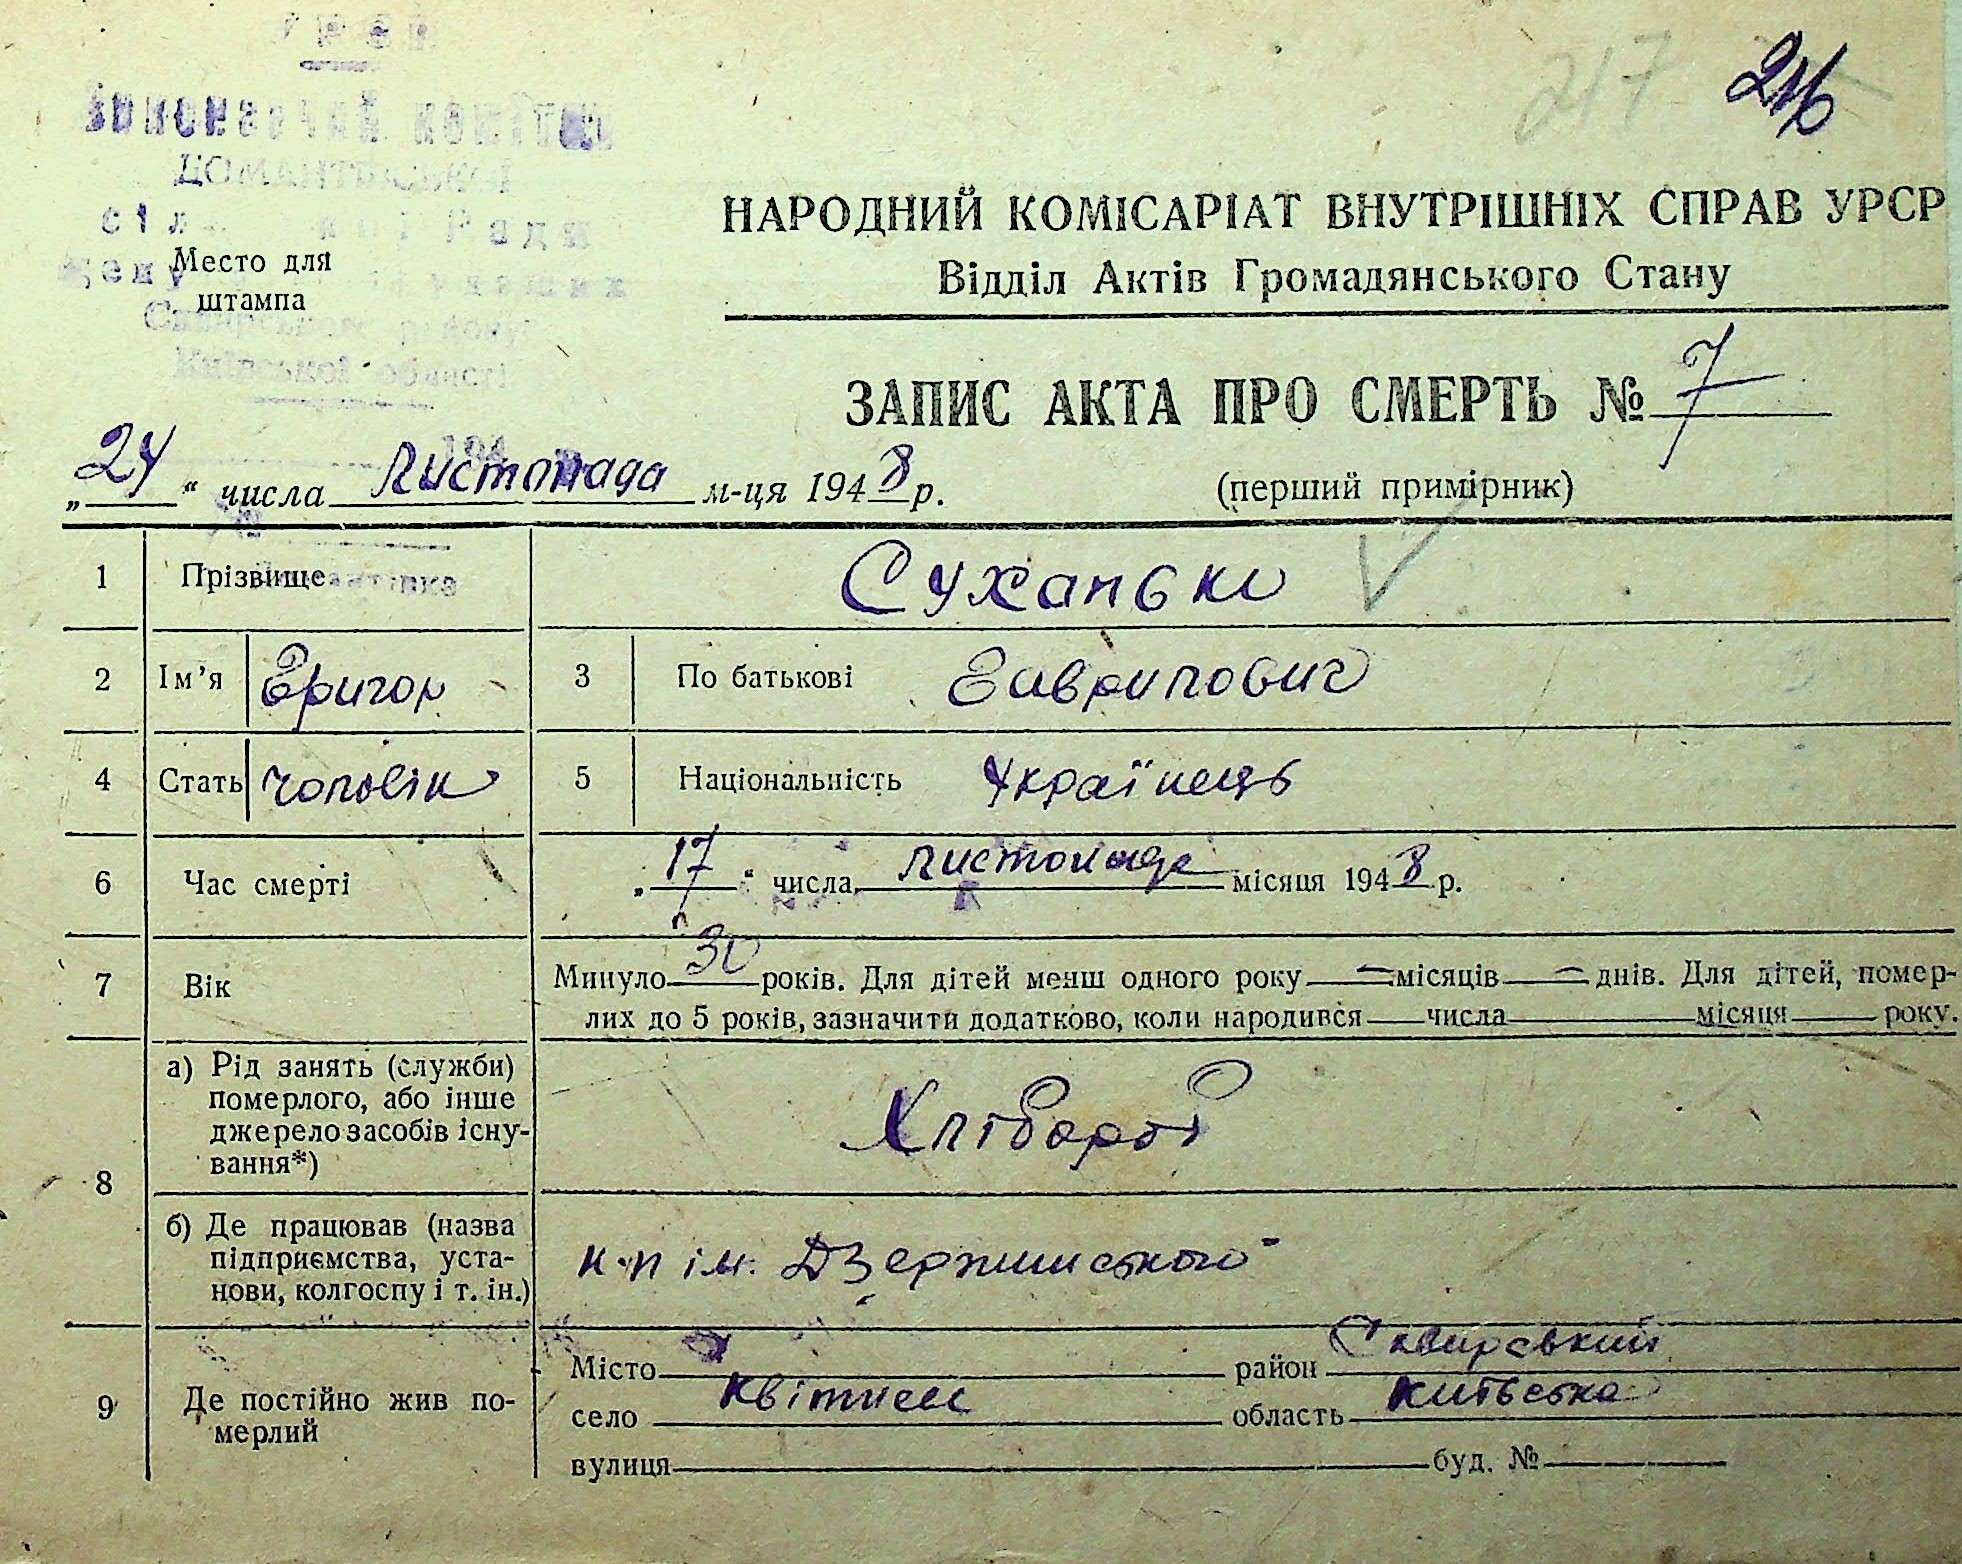 217 216
Виконавчий комітет
ДОМАНТІВСЬКОЇ
сіл ної Ради
Место для
штампа
Сквирського району
Київської області
НАРОДНИЙ КОМІСАРІАТ ВНУТРІШНІХ СПРАВ УРСР
Відділ Актів Громадянського Стану
ЗАПИС АКТА ПРО СМЕРТЬ № 7
„24“ числа Листопада м-ця 1948 р. (перший примірник)
1 Прізвище
2 Ім’я Григор 3 По батькові Гаврилович
4 Стать чоловік 5 Національність Українець
6 Час смерті „17“ числа листопада місяця 1948 р.
7 Вік Минуло 30 років. Для дітей менш одного року — місяців — днів. Для дітей, помер-
лих до 5 років, зазначити додатково, коли народився числа місяця року.
8 а) Рід занять (служби)
померлого, або інше
джерело засобів існу-
вання*)
Хлібороб
б) Де працював (назва
підприємства, уста-
нови, колгоспу і т. ін.)
к-п ім. Дзержинського
9 Де постійно жив по-
мерлий
Місто район Сквирський
село область Київська
вулиця буд. №